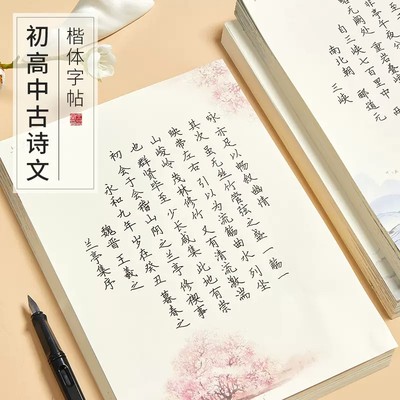 楷体字帖
初高中古诗文
兰亭集序
魏晋 王羲之
永和九年岁在癸丑暮春之
初会于会稽山阴之兰亭修禊事
也群贤毕至少长咸集此地有崇
山峻岭茂林修竹又有清流激湍
映带左右引以为流觞曲水列坐
其次虽无丝竹管弦之盛一觞一
咏亦足以畅叙幽情
三峡
南北朝 郦道元
自三峡七百里中
无阙处重岩叠